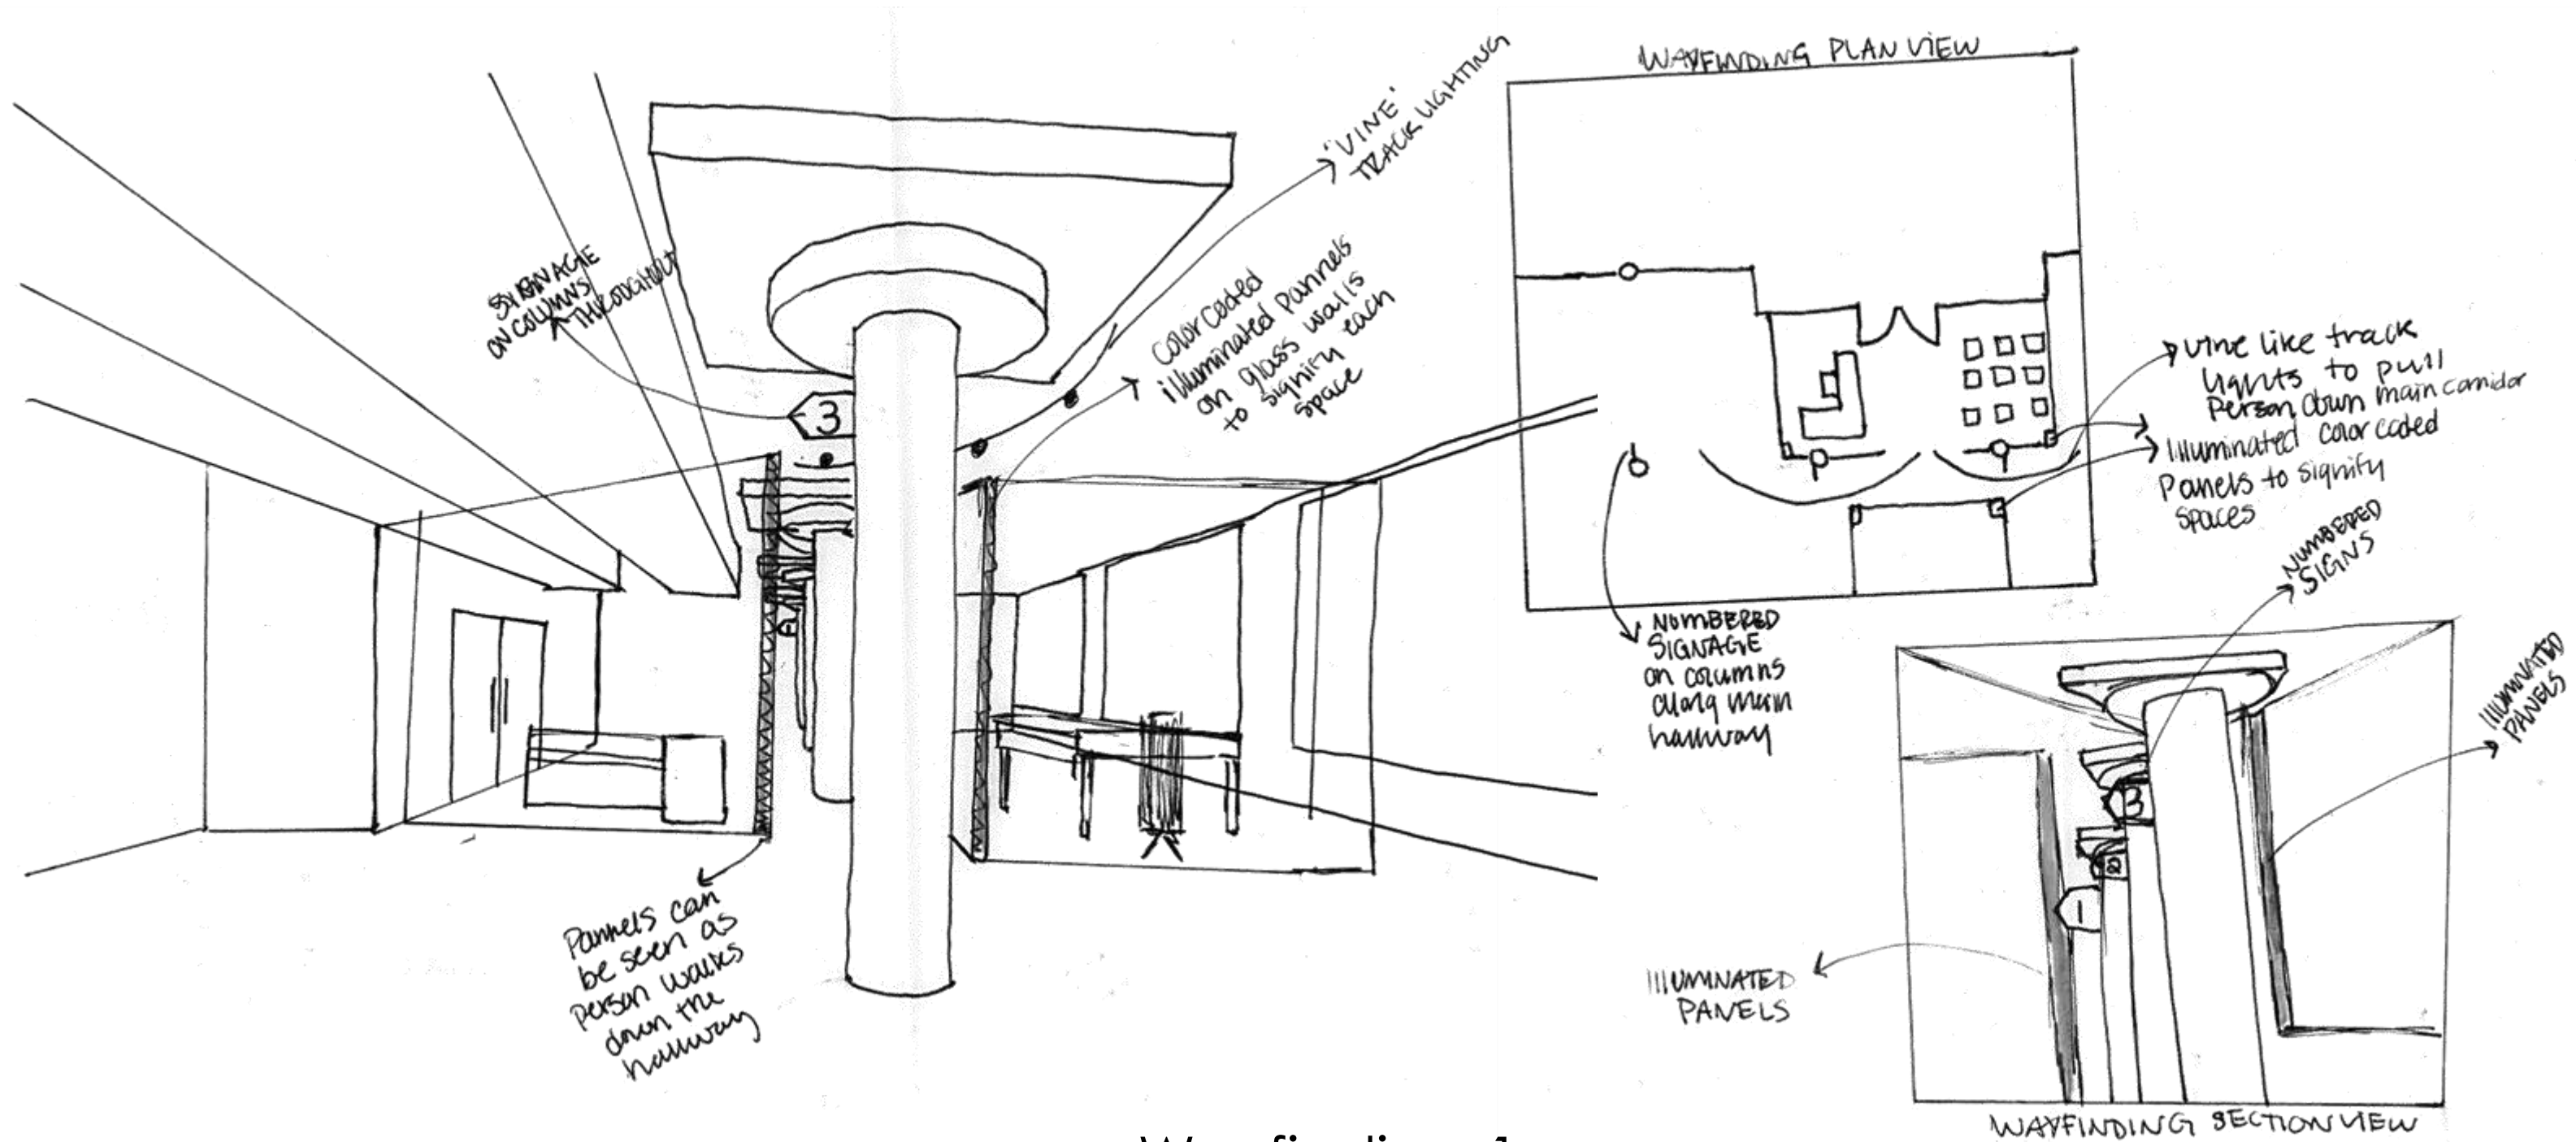 SIGNAGE
ON COLUMNS
THROUGHOUT
3
'VINE'
TRACK LIGHTING
Color coded
illuminated pannels
on glass walls
to signify each
space
Pannels can
be seen as
person walks
down the
hallway
WAYFINDING PLAN VIEW
vine like track
lights to pull
person down main corridor
Illuminated color coded
Panels to signify
spaces
NUMBERED
SIGNAGE
on columns
along main
hallway
NUMBERED
SIGNS
ILLUMINATED
PANELS
3
2
1
ILLUMINATED
PANELS
WAYFINDING SECTION VIEW